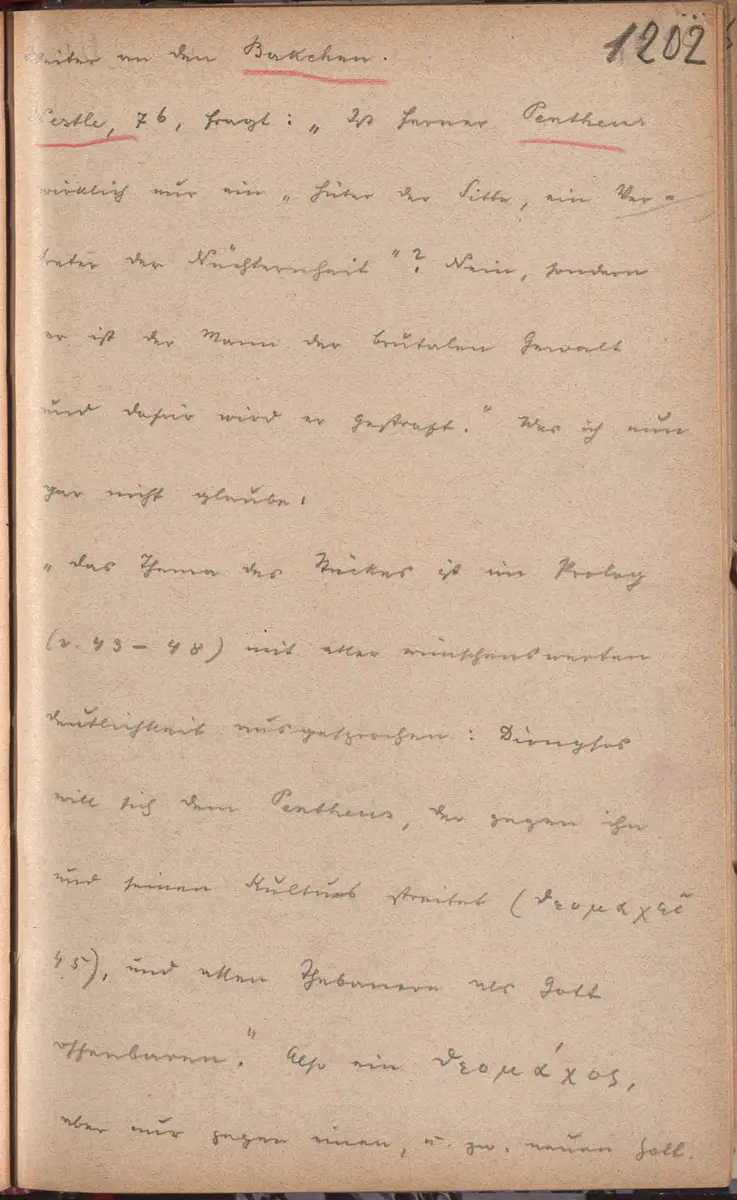 1202
Weiter an den Bakchen.
Nestle, 76, fragt: „Ist ferner Pentheus
wirklich nur ein „Hüter der Sitte, ein Ver=
treter der Nüchternheit"? Nein, sondern
er ist der Mann der brutalen Gewalt
und dafür wird er gestraft." Was ich nun
gar nicht glaube.
„Das Thema des Stückes ist im Prolog
(v. 43 – 48) mit aller wünschenswerten
Deutlichkeit ausgesprochen: Dionysos
will sich dem Pentheus, der gegen ihn
und seinen Kultus streitet (θεομαχεῖ
45), und allen Thebanern als Gott
offenbaren." Also ein θεομάχος,
aber nur gegen einen, u. zw. neuen Gott.